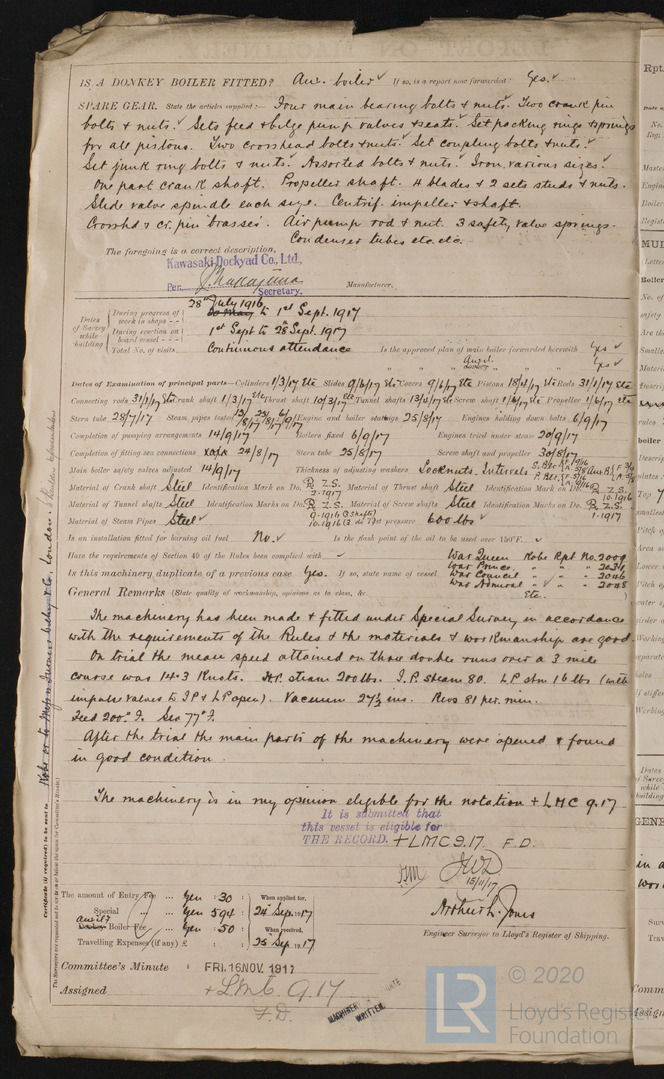 IS A DONKEY BOILER FITTED? Aux. boiler If so, is a report now forwarded? Yes.
SPARE GEAR. State the articles supplied:— Four main bearing bolts & nuts. Two crank pin
bolts & nuts. Sets feed & bilge pump valves & seats. Set packing rings & springs
for all pistons. Two crosshead bolts & nuts. Set coupling bolts & nuts.
Set junk ring bolts & nuts. Assorted bolts & nuts. Iron, various sizes.
One part crank shaft. Propeller shaft. 4 blades & 2 sets studs & nuts.
Slide valve spindle each size. Centrif. impeller & shaft.
Crosshd & cr. pin brasses. Air pump rod & nut. 3 safety valve springs.
Condenser tubes etc. etc.
The foregoing is a correct description,
Kawasaki Dockyad Co., Ltd.,
Per. Secretary. Manufacturer.
Dates of Survey while building
During progress of work in shops - - 28th July 1916 to 1st Sept. 1917
During erection on board vessel - - - 1st Sept to 28 Sept. 1917
Total No. of visits Continuous attendance Is the approved plan of main boiler forwarded herewith Yes
" " " donkey Auxl. " " " Yes
Dates of Examination of principal parts—Cylinders 1/3/17 Etc Slides 9/6/17 Etc Covers 9/6/17 Etc Pistons 18/4/17 Etc Rods 31/1/17 Etc
Connecting rods 31/1/17 Etc Crank shaft 1/3/17 Etc Thrust shaft 10/3/17 Etc Tunnel shafts 13/4/17 Etc Screw shaft 1/6/17 Etc Propeller 1/6/17 Etc
Stern tube 28/7/17 Steam pipes tested Engine and boiler seatings 25/8/17 Engines holding down bolts 6/9/17
Completion of pumping arrangements 14/9/17 Boilers fixed 6/9/17 Engines tried under steam 20/9/17
Completion of fitting sea connections 24/8/17 Stern tube 25/8/17 Screw shaft and propeller 30/8/17
Main boiler safety valves adjusted 14/9/17 Thickness of adjusting washers Locknuts. Intervals
Material of Crank shaft Steel Identification Mark on Do. Z.S. 2.1917 Material of Thrust shaft Steel Identification Mark on Do. Z.S. 10.1916
Material of Tunnel shafts Steel Identification Marks on Do. Z.S. 9.1916 (3 shafts) Material of Screw shafts Steel Identification Marks on Do. Z.S. 1.1917
Material of Steam Pipes Steel 10.1916 Test pressure 600 lbs
Is an installation fitted for burning oil fuel No. Is the flash point of the oil to be used over 150°F.
Have the requirements of Section 49 of the Rules been complied with War Queen Kobe Rpt No. 2009
Is this machinery duplicate of a previous case Yes. If so, state name of vessel War Prince " " " 2031
War Council " " " 2046
War Admiral " " " 2048
Etc.
General Remarks (State quality of workmanship, opinions as to class, &c.
The machinery has been made & fitted under Special Survey in accordance
with the requirements of the Rules & the materials & workmanship are good.
On trial the mean speed attained on three double runs over a 3 mile
course was 14.3 Knots. H.P. steam 200 lbs. I.P. steam 80. L.P. stm 16 lbs (with
impulse valves to I.P. & L.P. open). Vacuum 27½ ins. Revs 81 per. min.
Feed 200° F. Sea 77° F.
After the trial the main parts of the machinery were opened & found
in good condition.
The machinery is in my opinion eligible for the notation + LMC 9.17
It is submitted that
this vessel is eligible for
THE RECORD. + LMC 9.17. F.D.
15/11/17
The amount of Entry Fee ... Yen : 30 When applied for,
Special ... Yen 594 : 24 Sep. 1917
Donkey Auxil. Boiler Fee ... Yen : 50 When received,
Travelling Expenses (if any) £ : : 25 Sep. 1917
Arthur L. Jones
Engineer Surveyor to Lloyd's Register of Shipping.
Committee's Minute FRI. 16 NOV. 1917
Assigned + LMC 9.17
F.D.
MACHINERY CERTIFICATE WRITTEN.
LR © 2020
Lloyd's Register
Foundation